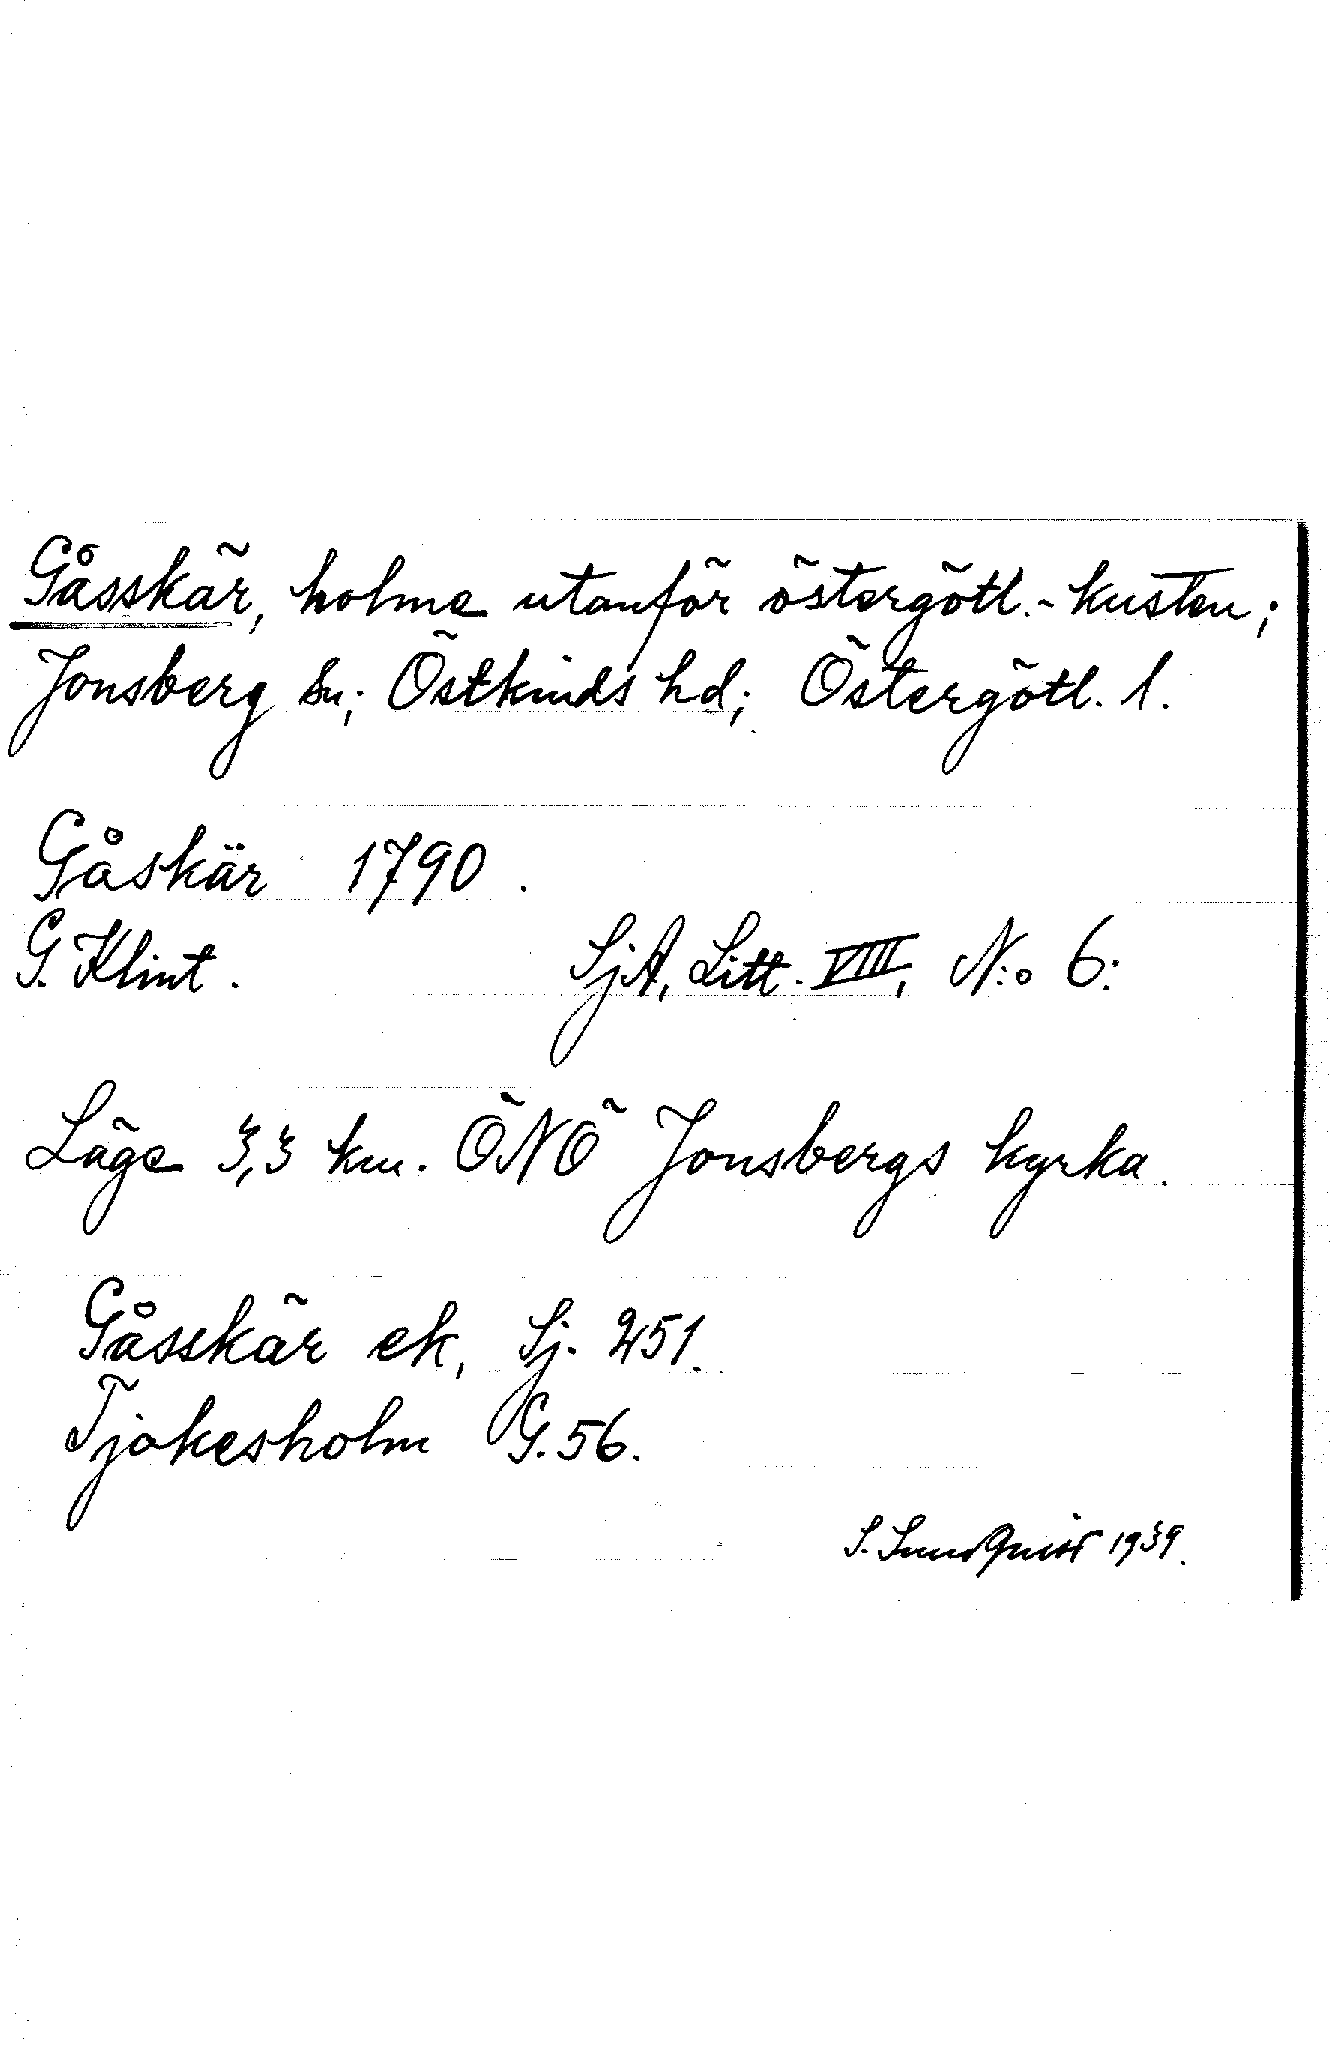 Gåsskär, holme utanför östergötl.-kusten;
Jonsberg sn; Östkinds hd; Östergötl. l.
Gåskär 1790.
G. Klint. SjA, Litt. VIII, N:o 6:
Läge 3,3 km. ÖNÖ Jonsbergs kyrka.
Gåsskär ek, Sj. 251.
Tjokesholm G. 56.
S. Sundquist 1939.